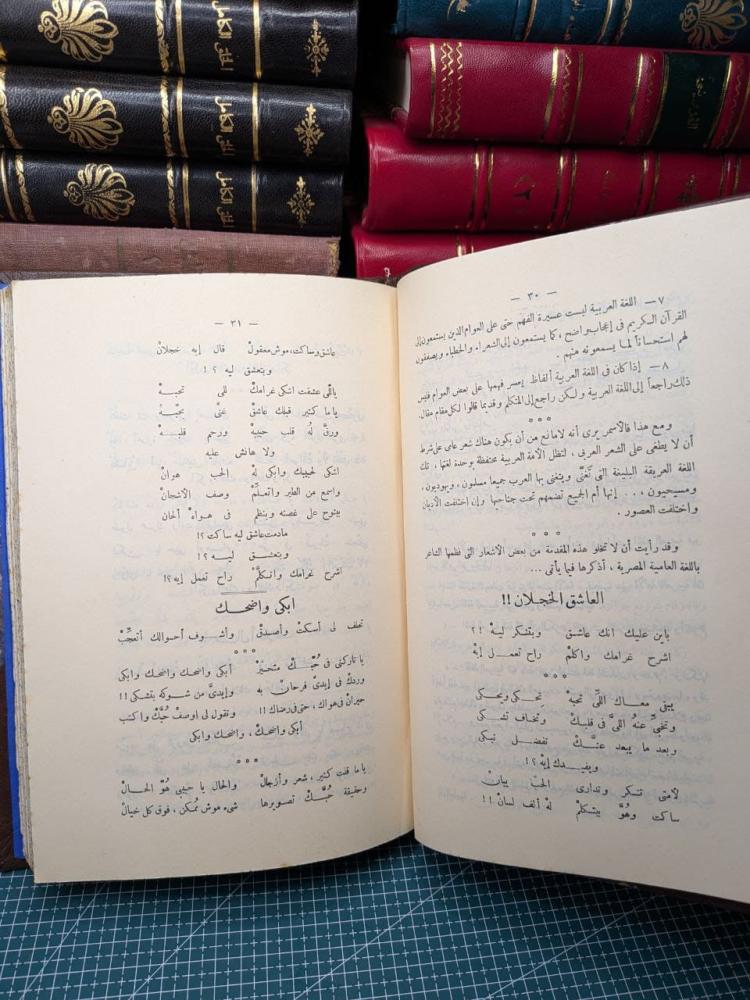 الحلى الكامل
الحلى الكامل
الحلى الكامل
٢١
— ٣٠ —
٧ — اللغة العربية ليست عسيرة الفهم حتى على العوام الذين يستمعون إلى
القرآن الكريم فى إعجاب واضح ، كما يستمعون إلى الشعراء والخطباء ويصفقون
لهم استحساناً لما يسمعونه منهم .
٨ — إذا كان فى اللغة العربية ألفاظ يعسر فهمها على بعض العوام فليس
ذلك راجعاً إلى اللغة العربية ولكن راجع إلى المتكلم وقديما قالوا لكل مقام مقال
* * *
ومع هذا فالأسمر يرى أنه لا مانع من أن يكون هناك شعر عامى على شرط
أن لا يطغى على الشعر العربى ، لتظل الأمة العربية محتفظة بوحدة لغتها ، تلك
اللغة العريقة البليغة التى تَغَنَّى ويتغنى بها العرب جميعا مسلمون ، ويهوديون ،
ومسيحيون ... إنها أم الجميع تضمهم تحت جناحيها وإن اختلفت الأديان
واختلفت العصور .
* * *
وقد رأيت أن لا تخلو هذه المقدمة من بعض الأشعار التى نظمها الشاعر
باللغة العامية المصرية ، أذكرها فيما يأتى ...
العاشق الخجلان !!
باين عليك انك عاشق وبتفكر ليهْ !؟
اشرح غرامك واكلمْ راح تعمل إيهْ
* * *
يبقى معاك اللِّى تحبهْ تحكى ويحكى
وتخبىِّ عنهُ اللىِّ فى قلبكْ وتخاف تشكى
وبعد ما يبعد عنكْ تفضل تبكى
ويفيدك إيهْ ؟!
لامتى تنكر وتدارى الحب يبانْ
ساكت وهُوَّ بيتكلمْ لهْ ألف لسانْ !!
— ٣١ —
عاشق وساكت ، موش معقولْ قال إيه خجلانْ
وبتعشق ليه ؟!
ياللى عشقت اشكى غرامكْ للى تحبهْ
ياما كتير قبلك عاشق غنى بحبهْ
ورقّ لُه قلب حبيبهْ ورحم قلبهْ
ولا هانش عليه
اشكى لحبيبك وابكى لهْ الحب هوانْ
واسمع من الطير واتعلمْ وصف الأشجانْ
بينوح على غصنه وينظم فى هواهْ ألحان
مادمت عاشق ليه ساكت ؟!
وبتعشق ليه ؟!
اشرح غرامك واتكلمْ راح تعمل إيه ؟!
ابكى واضحك
تحلف لى أسكتْ وأصدقْ وأشوف أحوالك أتعجبْ
* * *
يا تاركنى فى حُبّكْ متحيرْ أبكى واضحك واضحك وابكى
وردكْ فى إيدى فرحان به وإيدىَّ من شوكه بتشكى !!
حيران فى هواك ، حتى فى رضاك !! وتقول لى اوصف حُبَّكْ واكتب
أبكى واضحكْ ، واضحك وابكى
* * *
ياما قلت كتير ، شعر وأزجالْ والحال يا حبيبى هُوّ الحالْ
وحقيقة حُبَّكْ تصويرها شىء موش مُمكن ، فوق كل خيالْ